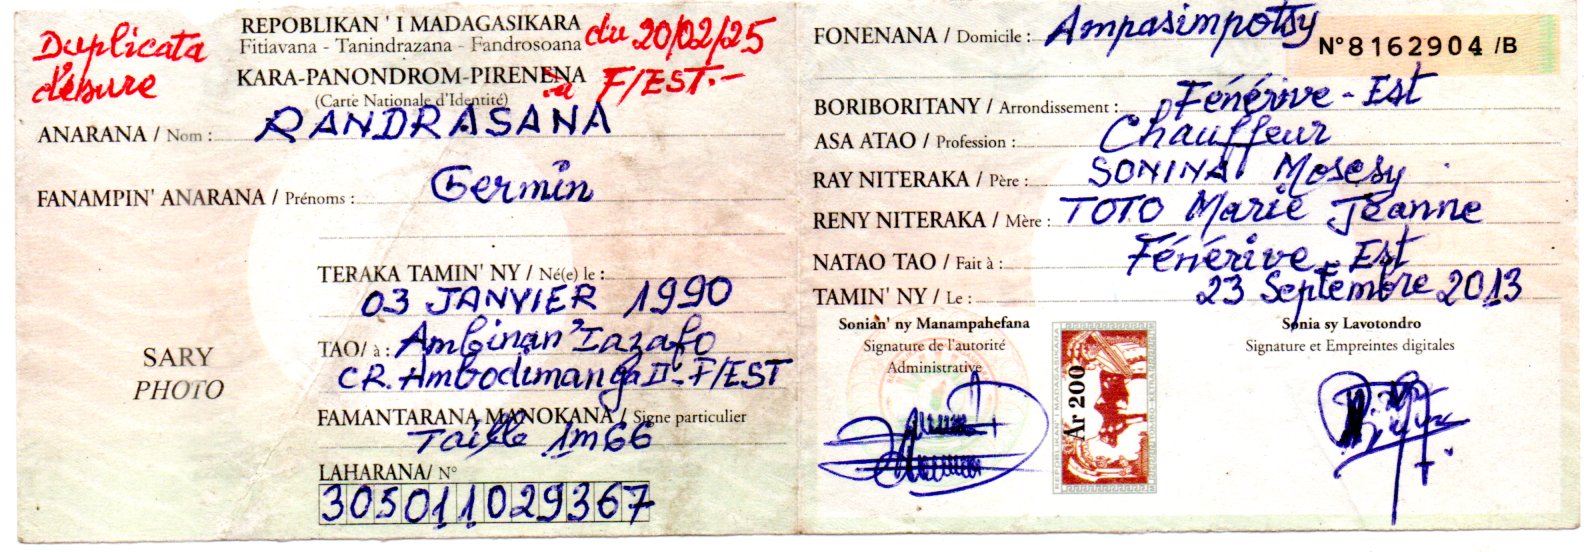 Duplicata
d'usure
du 20/02/25
à F/EST.-
REPOBLIKAN ' I MADAGASIKARA
Fitiavana - Tanindrazana - Fandrosoana
KARA-PANONDROM-PIRENENA
(Carte Nationale d'Identité)
ANARANA / Nom : RANDRASANA
FANAMPIN' ANARANA / Prénoms : Germin
TERAKA TAMIN' NY / Né(e) le :
03 JANVIER 1990
TAO/ à : Ambinan'Iazafo
CR. Ambodimanga II - F/EST
FAMANTARANA MANOKANA / Signe particulier
Taille 1m66
LAHARANA/ N°
305011029367
SARY
PHOTO
FONENANA / Domicile : Ampasimpotsy
N°8162904 /B
BORIBORITANY / Arrondissement : Fénérive-Est
ASA ATAO / Profession : Chauffeur
RAY NITERAKA / Père : SONINA Mosesy
RENY NITERAKA / Mère : TOTO Marie Jeanne
NATAO TAO / Fait à : Fénérive-Est
TAMIN' NY / Le : 23 Septembre 2013
Sonian' ny Manampahefana
Signature de l'autorité
Administrative
Ar 200
REPOBLIKAN'I MADAGASIKARA
Sonia sy Lavotondro
Signature et Empreintes digitales